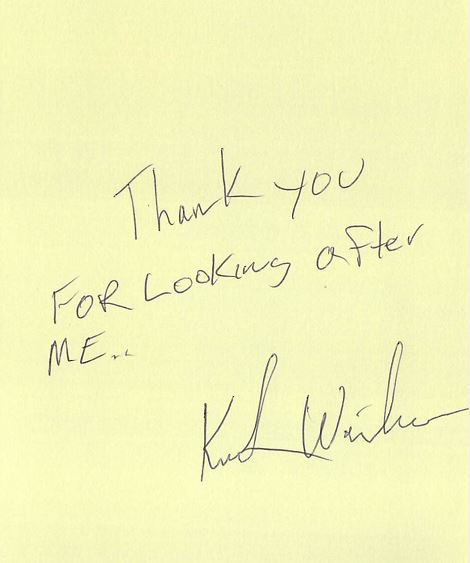 Thank YOU
FOR LOOKing after
ME..